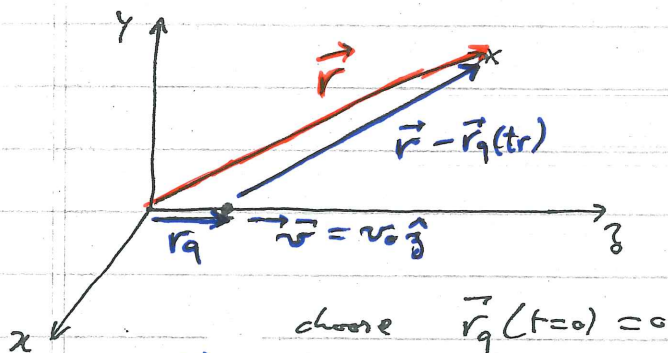 y
r⃗
r⃗ - r⃗q(tr)
rq v⃗ = v₀ ẑ
z
x
choose r⃗q (t=0) = 0